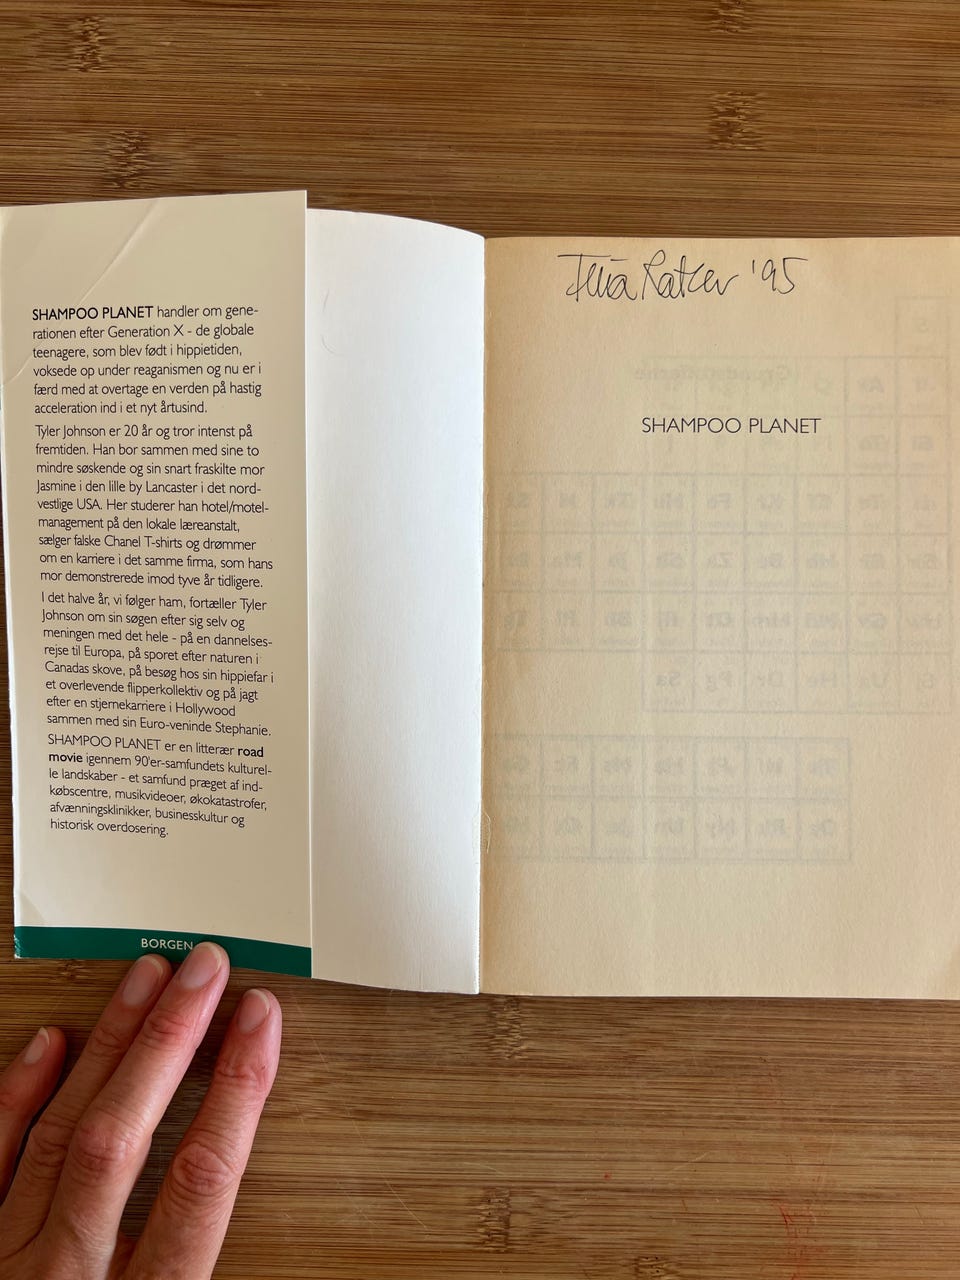 SHAMPOO PLANET handler om gene-
rationen efter Generation X - de globale
teenagere, som blev født i hippietiden,
voksede op under reaganismen og nu er i
færd med at overtage en verden på hastig
acceleration ind i et nyt årtusind.
Tyler Johnson er 20 år og tror intenst på
fremtiden. Han bor sammen med sine to
mindre søskende og sin snart fraskilte mor
Jasmine i den lille by Lancaster i det nord-
vestlige USA. Her studerer han hotel/motel-
management på den lokale læreanstalt,
sælger falske Chanel T-shirts og drømmer
om en karriere i det samme firma, som hans
mor demonstrerede imod tyve år tidligere.
I det halve år, vi følger ham, fortæller Tyler
Johnson om sin søgen efter sig selv og
meningen med det hele - på en dannelses-
rejse til Europa, på sporet efter naturen i
Canadas skove, på besøg hos sin hippiefar i
et overlevende flipperkollektiv og på jagt
efter en stjernekarriere i Hollywood
sammen med sin Euro-veninde Stephanie.
SHAMPOO PLANET er en litterær road
movie igennem 90'er-samfundets kulturel-
le landskaber - et samfund præget af ind-
købscentre, musikvideoer, økokatastrofer,
afvænningsklinikker, businesskultur og
historisk overdosering.
BORGEN
'95
SHAMPOO PLANET
Grundstofferne